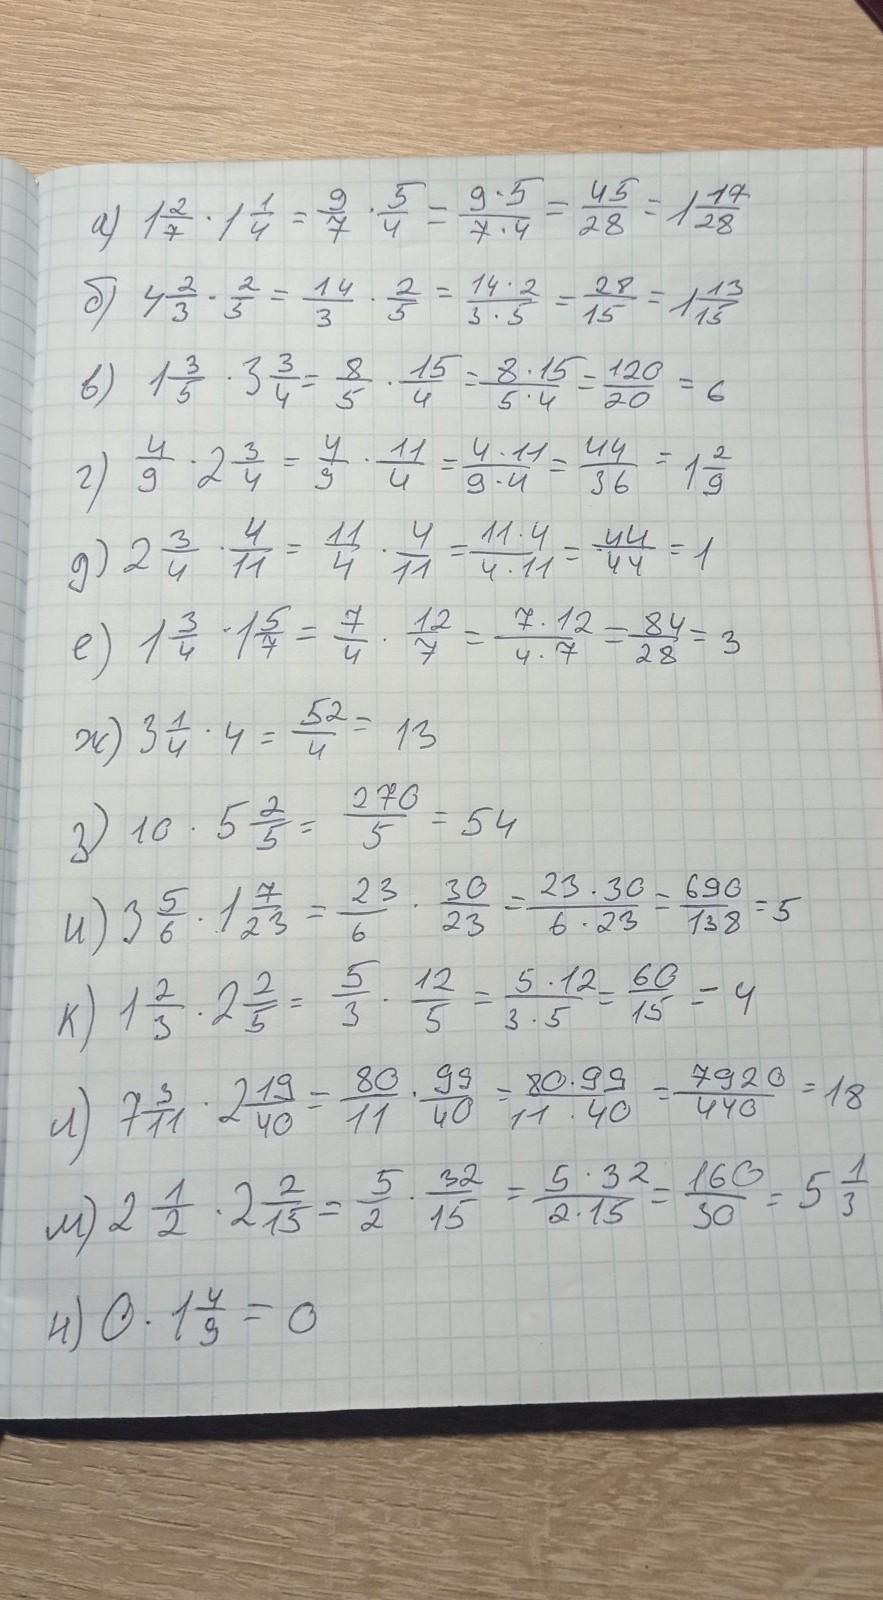 а) 1 2/7 · 1 1/4 = 9/7 · 5/4 = 9·5/7·4 = 45/28 = 1 17/28
б) 4 2/3 · 2/5 = 14/3 · 2/5 = 14·2/3·5 = 28/15 = 1 13/15
в) 1 3/5 · 3 3/4 = 8/5 · 15/4 = 8·15/5·4 = 120/20 = 6
г) 4/9 · 2 3/4 = 4/9 · 11/4 = 4·11/9·4 = 44/36 = 1 2/9
д) 2 3/4 · 4/11 = 11/4 · 4/11 = 11·4/4·11 = 44/44 = 1
е) 1 3/4 · 1 5/7 = 7/4 · 12/7 = 7·12/4·7 = 84/28 = 3
ж) 3 1/4 · 4 = 52/4 = 13
з) 10 · 5 2/5 = 270/5 = 54
и) 3 5/6 · 1 7/23 = 23/6 · 30/23 = 23·30/6·23 = 690/138 = 5
к) 1 2/3 · 2 2/5 = 5/3 · 12/5 = 5·12/3·5 = 60/15 = 4
л) 7 3/11 · 2 19/40 = 80/11 · 99/40 = 80·99/11·40 = 7920/440 = 18
м) 2 1/2 · 2 2/15 = 5/2 · 32/15 = 5·32/2·15 = 160/30 = 5 1/3
н) 0 · 1 4/9 = 0